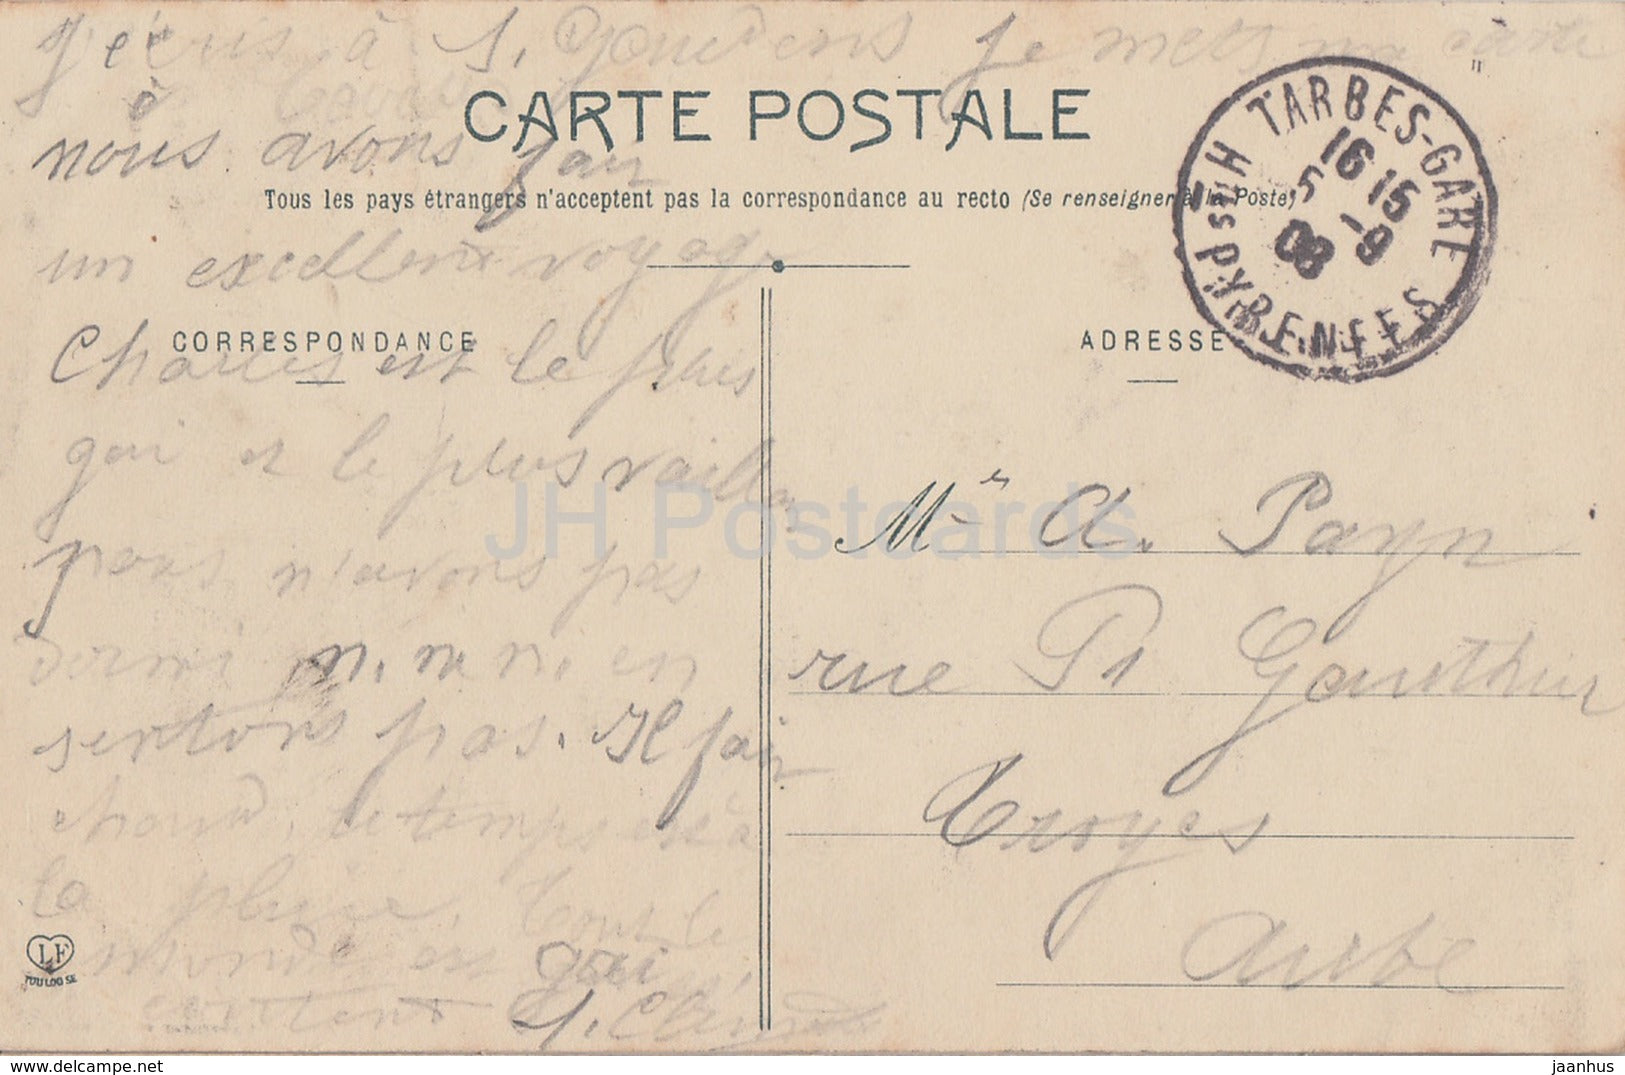 J'écris à S. Gaudens je mets ma carte
à
CARTE POSTALE
nous avons fait
Tous les pays étrangers n'acceptent pas la correspondance au recto (Se renseigner à la Poste)
un excellent voyage
CORRESPONDANCE
Charles est le plus
gai et le plus vaillant
nous n'avons pas
dormi n. n. n. en
sentons pas. Il fait
chaud, le temps est à
la pluie. Tout le
monde est gai
content
LF
TOULOUSE
TARBES-GARE
16 15
5 -9
08
Htes PYRENEES
ADRESSE
Mr A. Payn
rue Pt Gauthier
Troyes
Aube
JH Postcards
jaanhus